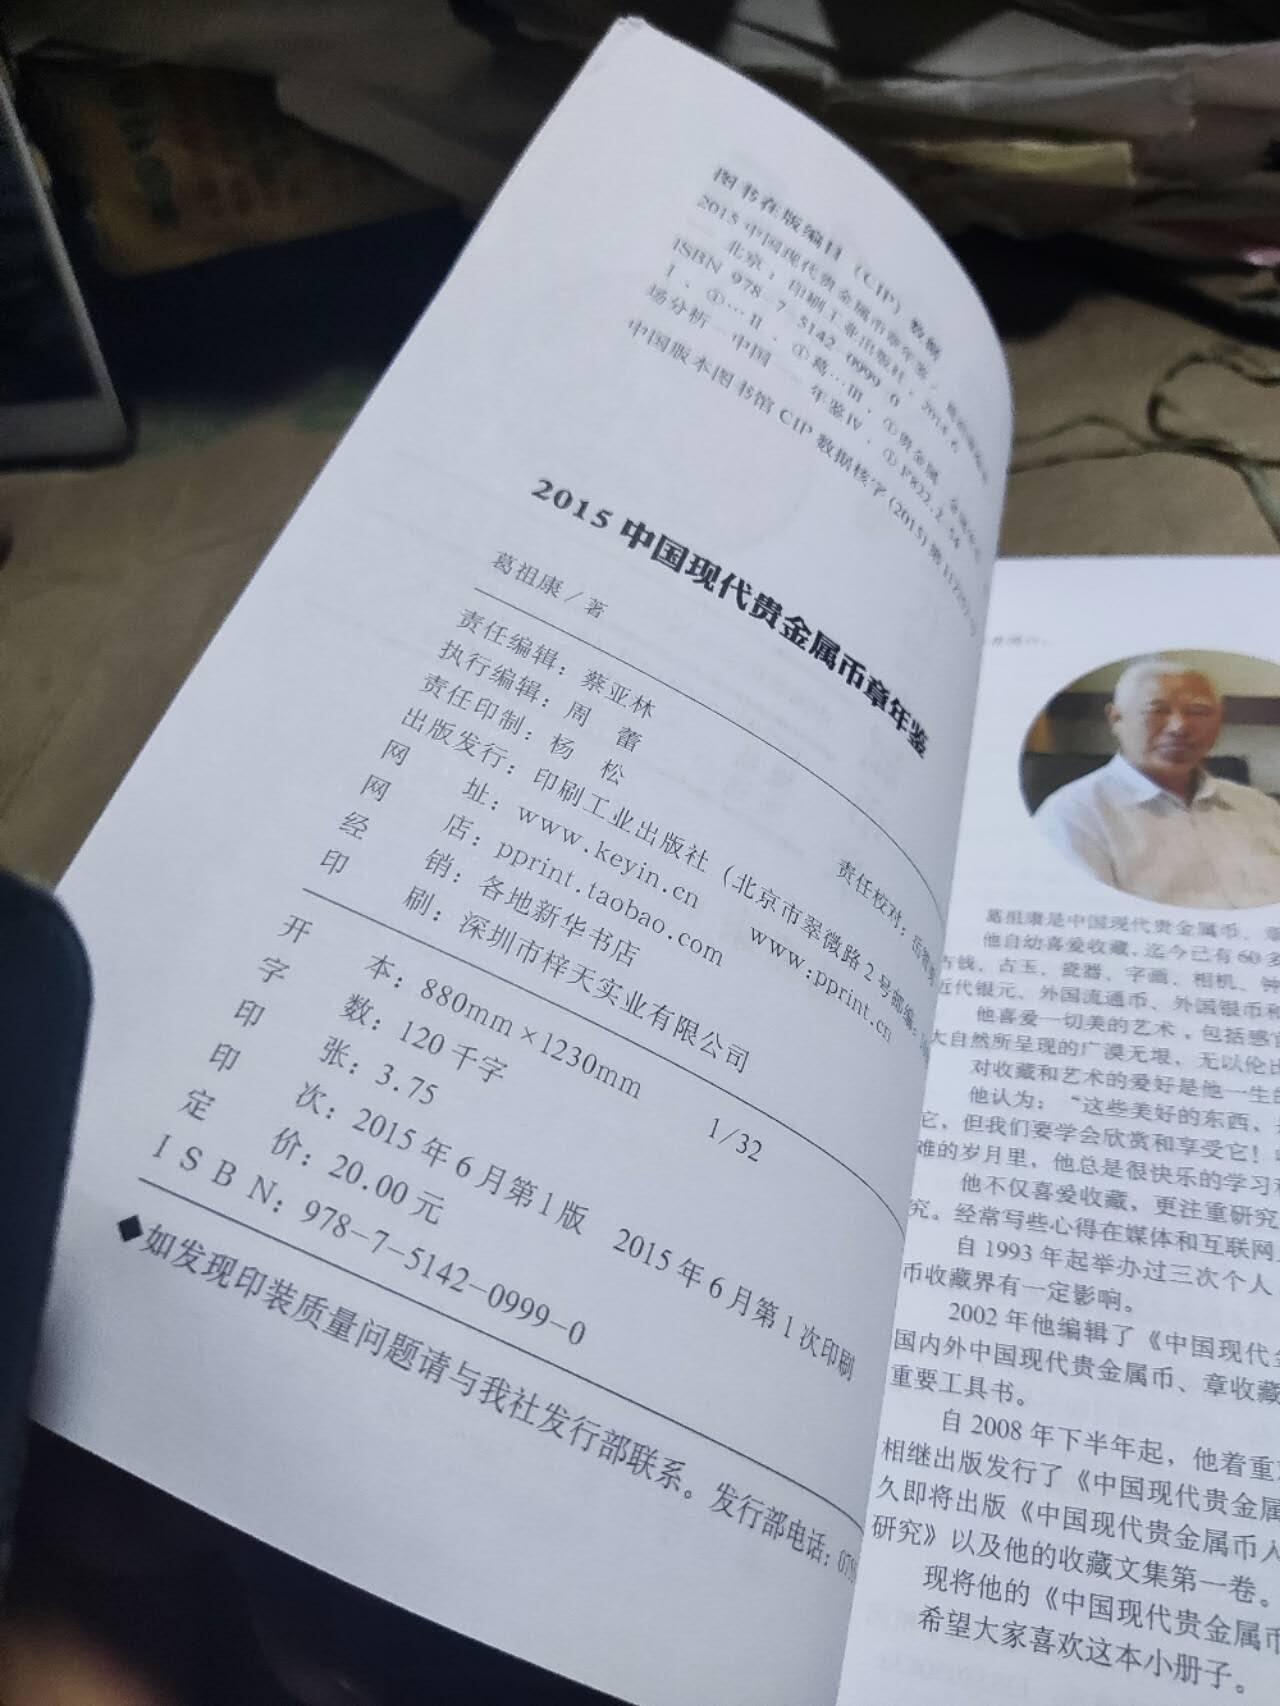 图书在版编目（CIP）数据
2015中国现代贵金属币章年鉴
—北京：印刷工业出版社，2014.6
ISBN 978-7-5142-0999-0
Ⅰ、①…Ⅱ、①葛…Ⅲ、①贵金属
场分析—中国——年鉴Ⅳ、①F822.2-54
中国版本图书馆CIP数据核字(2015)第
2015中国现代贵金属币章年鉴
葛祖康／著
责任编辑：蔡亚林
执行编辑：周 蕾 责任校对：
责任印制：杨 松
出版发行：印刷工业出版社（北京市翠微路2号邮编：
网 址：www.keyin.cn www.pprint.cn
网 店：pprint.taobao.com
经 销：各地新华书店
印 刷：深圳市梓天实业有限公司
开 本：880mm×1230mm 1/32
字 数：120千字
印 张：3.75
印 次：2015年6月第1版 2015年6月第1次印刷
定 价：20.00元
ISBN：978-7-5142-0999-0
◆如发现印装质量问题请与我社发行部联系。发行部电话：075
葛祖康是中国现代贵金属币、章
他自幼喜爱收藏，迄今已有60多
古钱、古玉、瓷器、字画、相机、钟
近代银元、外国流通币、外国银币和
他喜爱一切美的艺术，包括感官
大自然所呈现的广漠无垠，无以伦比
对收藏和艺术的爱好是他一生的
他认为：“这些美好的东西，
它，但我们要学会欣赏和享受它！
难的岁月里，他总是很快乐的学习
他不仅喜爱收藏，更注重研究
究。经常写些心得在媒体和互联网
自1993年起举办过三次个人
币收藏界有一定影响。
2002年他编辑了《中国现代
国内外中国现代贵金属币、章收藏
重要工具书。
自2008年下半年起，他着重
相继出版发行了《中国现代贵金属
久即将出版《中国现代贵金属币入
研究》以及他的收藏文集第一卷。
现将他的《中国现代贵金属币
希望大家喜欢这本小册子。